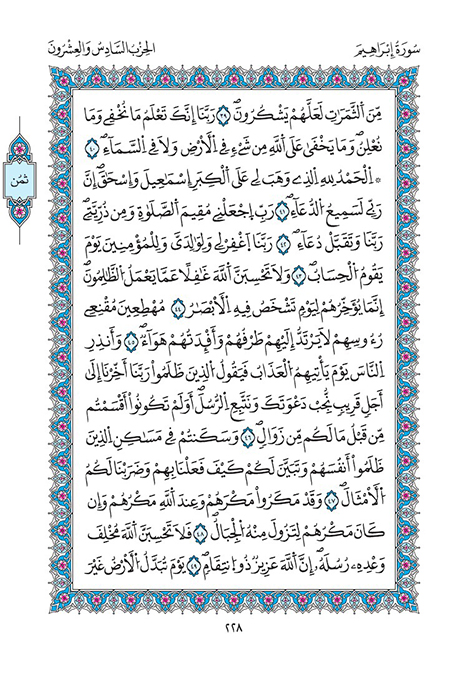 سُورَةُ إِبْرَاهِيمَ
الحِزْبُ السَّادِسُ وَالعِشْرُونَ
مِّنَ اَ۬لثَّمَرَٰتِ لَعَلَّهُمْ يَشْكُرُونَۖ ٣٩ رَبَّنَا إِنَّكَ تَعْلَمُ مَا نُخْفِي وَمَا
نُعْلِنُۖ وَمَا يَخْفَىٰ عَلَى اَ۬للَّهِ مِن شَےْءٖ فِي اِ۬لْأَرْضِ وَلَا فِي اِ۬لسَّمَآءِۖ ٤٠
۞ اَ۬لْحَمْدُ لِلهِ اِ۬لذِے وَهَبَ لِي عَلَى اَ۬لْكِبَرِ إِسْمَٰعِيلَ وَإِسْحَٰقَۖ إِنَّ
رَبِّي لَسَمِيعُ اُ۬لدُّعَآءِۖ ٤١ رَبِّ اِ۪جْعَلْنِي مُقِيمَ اَ۬لصَّلَوٰةِ وَمِن ذُرِّيَّتِيۖ
رَبَّنَا وَتَقَبَّلْ دُعَآءِۖ ٤٢ رَبَّنَا اَ۪غْفِرْ لِي وَلِوَٰلِدَيَّ وَلِلْمُؤْمِنِينَ يَوْمَ
يَقُومُ اُ۬لْحِسَابُۖ ٤٣ وَلَا تَحْسِبَنَّ اَ۬للَّهَ غَٰفِلاً عَمَّا يَعْمَلُ اُ۬لظَّٰلِمُونَۖ
إِنَّمَا يُؤَخِّرُهُمْ لِيَوْمٖ تَشْخَصُ فِيهِ اِ۬لْأَبْصَٰرُ ٤٤ مُهْطِعِينَ مُقْنِعِي
رُءُوسِهِمْ لَا يَرْتَدُّ إِلَيْهِمْ طَرْفُهُمْ وَأَفْـِٕدَتُهُمْ هَوَآءٞۖ ٤٥ وَأَنذِرِ
اِ۬لنَّاسَ يَوْمَ يَأْتِيهِمُ اُ۬لْعَذَابُ فَيَقُولُ اُ۬لذِينَ ظَلَمُواْ رَبَّنَا أَخِّرْنَا إِلَىٰ
أَجَلٖ قَرِيبٖ نُّجِبْ دَعْوَتَكَ وَنَتَّبِعِ اِ۬لرُّسُلَۖ أَوَلَمْ تَكُونُواْ أَقْسَمْتُم
مِّن قَبْلُ مَا لَكُم مِّن زَوَالٖۖ ٤٦ وَسَكَنتُمْ فِي مَسَٰكِنِ اِ۬لذِينَ
ظَلَمُواْ أَنفُسَهُمْ وَتَبَيَّنَ لَكُمْ كَيْفَ فَعَلْنَا بِهِمْ وَضَرَبْنَا لَكُمُ
اُ۬لْأَمْثَالَۖ ٤٧ وَقَدْ مَكَرُواْ مَكْرَهُمْ وَعِندَ اَ۬للَّهِ مَكْرُهُمْ وَإِن
كَانَ مَكْرُهُمْ لِتَزُولَ مِنْهُ اُ۬لْجِبَالُۖ ٤٨ فَلَا تَحْسِبَنَّ اَ۬للَّهَ مُخْلِفَ
وَعْدِهِۦ رُسُلَهُۥۖ إِنَّ اَ۬للَّهَ عَزِيزٞ ذُو اُ۪نتِقَامٖۖ ٤٩ يَوْمَ تُبَدَّلُ اُ۬لْأَرْضُ غَيْرَ
ثُمُن
٢٢٨